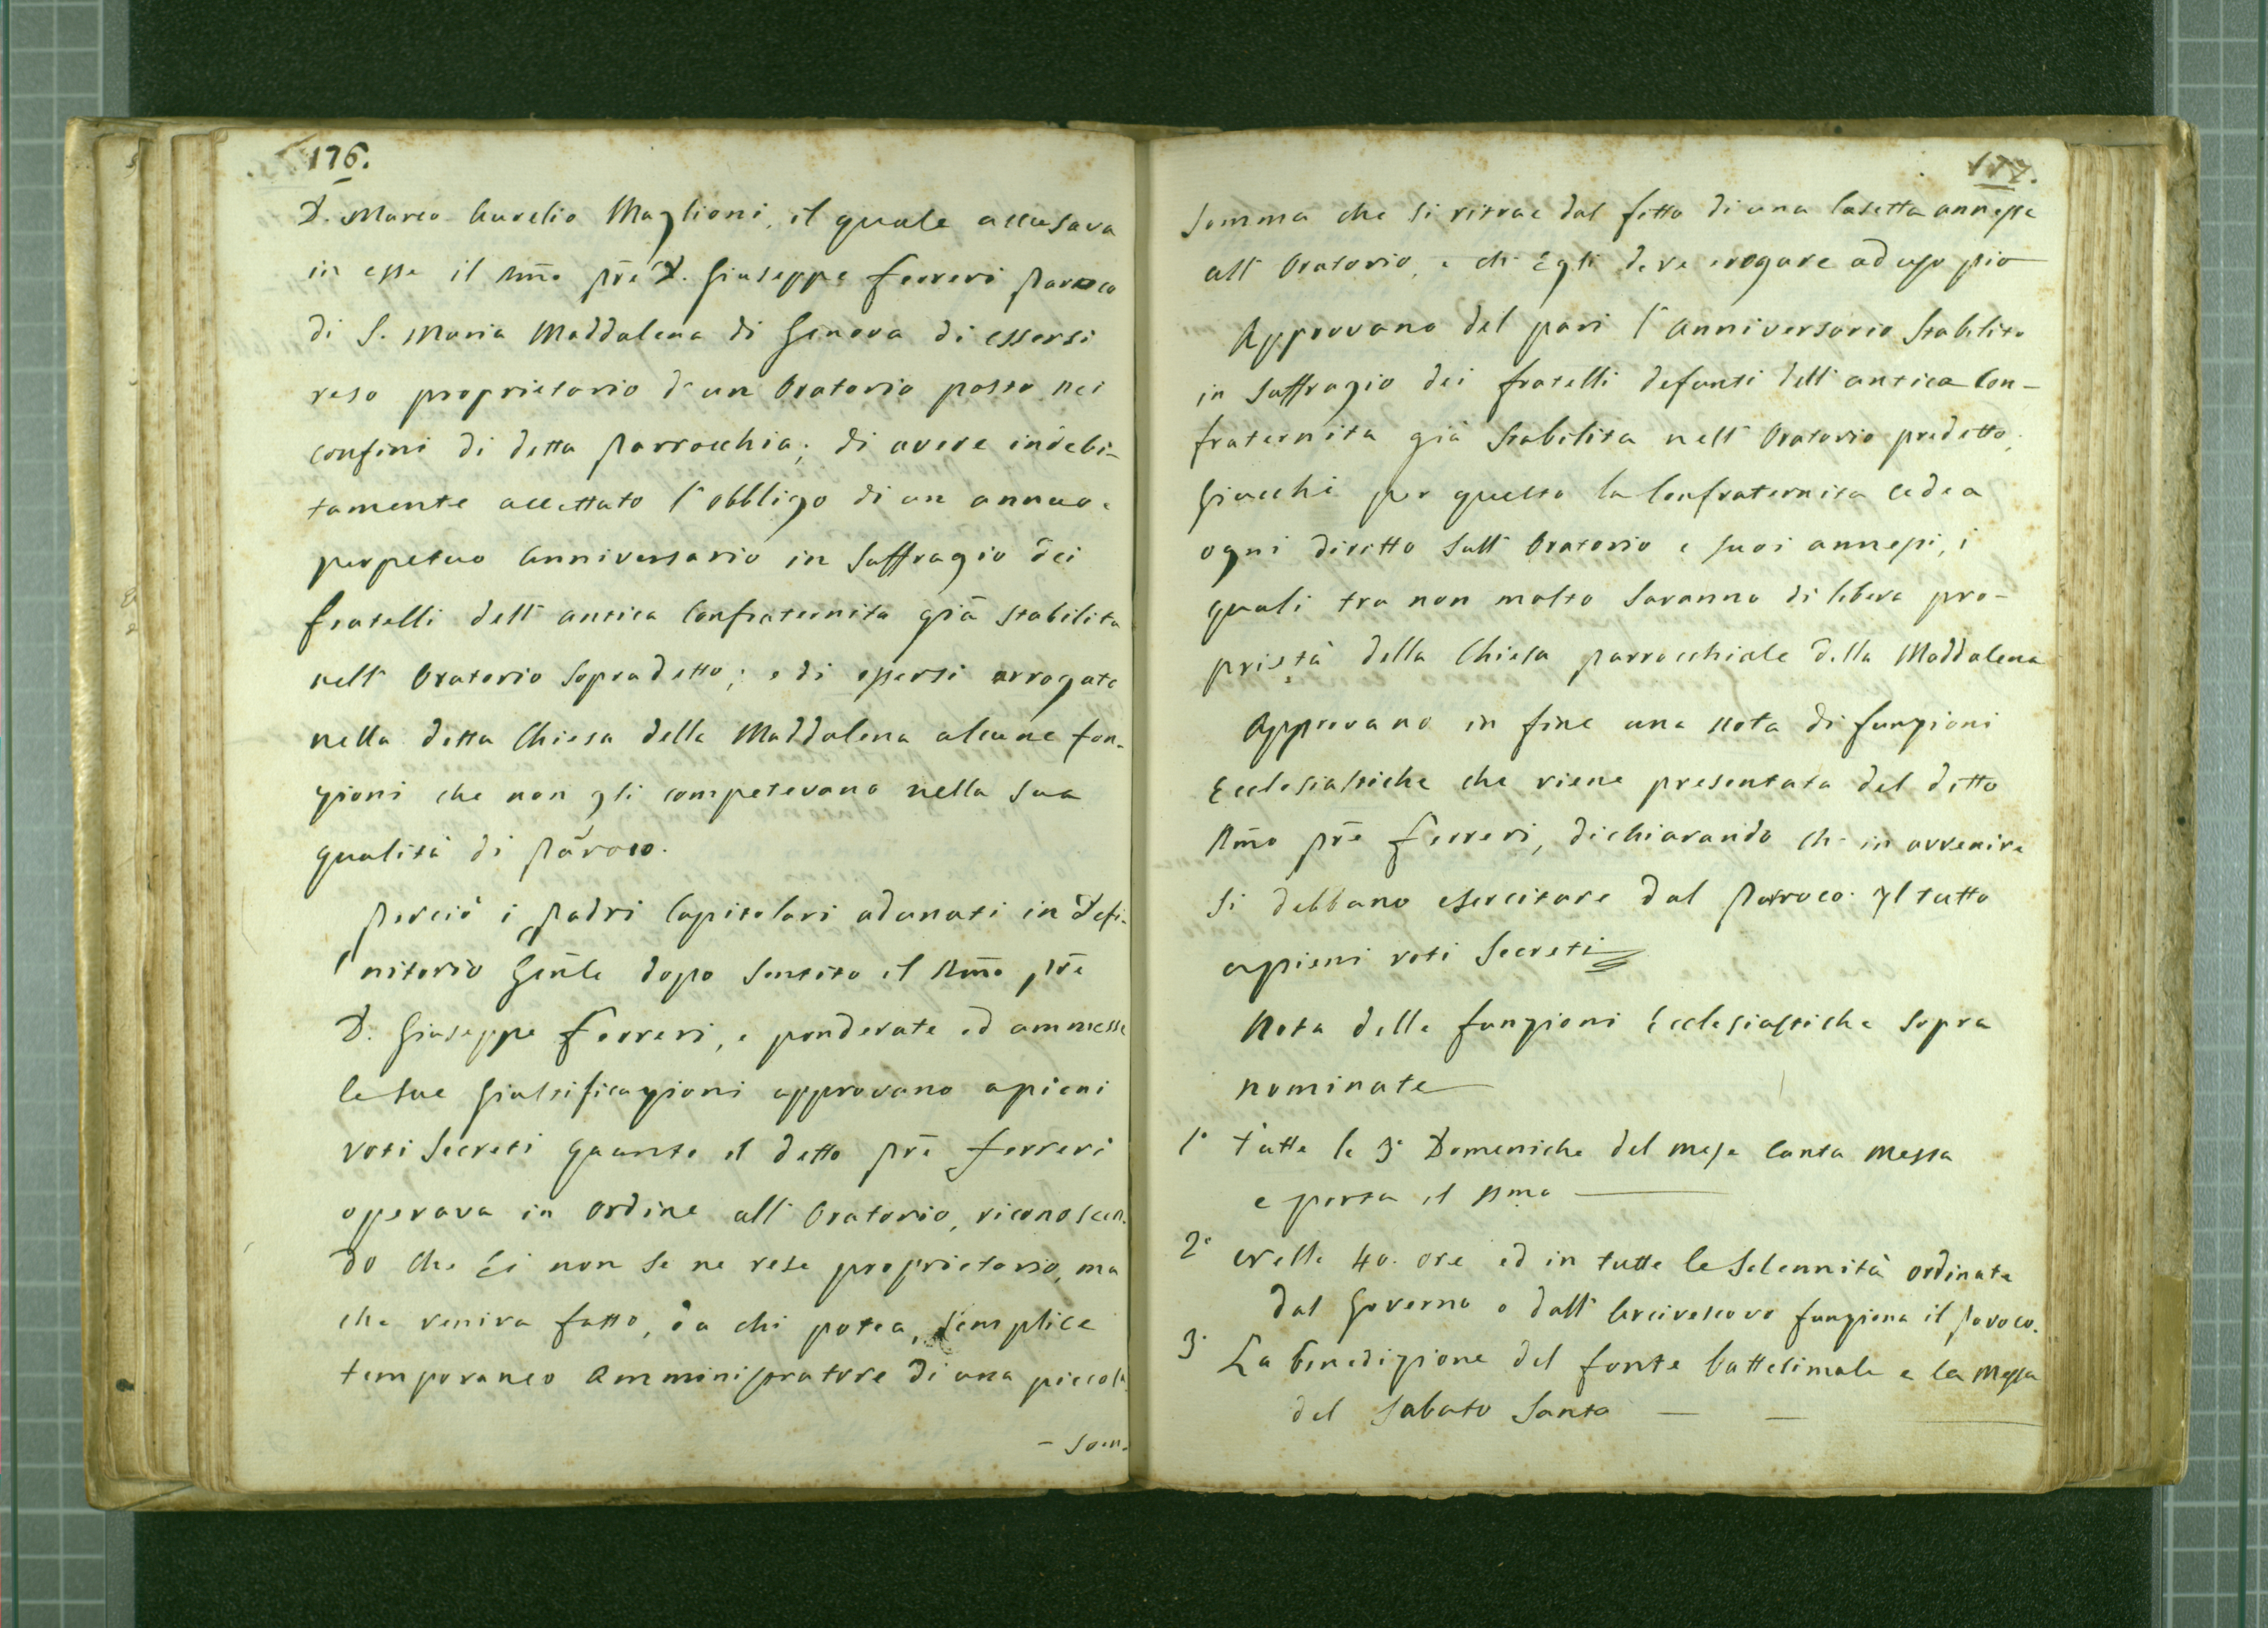 176.
D. Marco Aurelio Maglioni, il quale accusava
in esse il Rm̃o prẽ D. Giuseppe Ferreri Parroco
di S. Maria Maddalena di Genova di essersi
reso proprietario d'un Oratorio posto nei
confini di detta Parrocchia; di avere indebi-
tamente accettato l'obbligo di un annuo e
perpetuo Anniversario in suffragio dei
fratelli dell'antica Confraternita già stabilita
nell'Oratorio sopradetto; e di essersi arrogate
nella detta Chiesa della Maddalena alcune fun-
zioni che non gli competevano nella sua
qualità di Pároco.
Perciò i Padri Capitolari adunati in Defi-
nitorio Gen̄le dopo sentito il Rm̃o prẽ
D. Giuseppe Ferreri, e ponderate ed ammesse
le sue Giustificazioni approvano a pieni
voti secreti quanto il detto prẽ Ferreri
operava in ordine all'Oratorio, riconoscen-
do che Ei non se ne rese proprietario, ma
che veniva fatto, da chi potea, semplice
temporaneo Amministratore di una piccola
- Som-
177.
Somma che si ritrae dal fitto di una Casetta annessa
all'Oratorio, e che Egli deve erogare ad uso pio
Approvano del pari l'Anniversario stabilito
in suffragio dei fratelli defunti dell'antica Con-
fraternita già stabilita nell'Oratorio predetto,
Giacchè per questo la Confraternita cedea
ogni diritto sull'Oratorio e suoi annessi, i
quali tra non molto saranno di libera pro-
prietà della Chiesa parrocchiale della Maddalena
Approvano in fine una nota di funzioni
Ecclesiastiche che viene presentata dal detto
Rm̃o prẽ Ferreri, dichiarando che in avvenire
si debbano esercitare dal Parroco. Il tutto
a pieni voti secreti
Nota delle funzioni Ecclesiastiche sopra
nominate
1° Tutte le 3e Domeniche del mese Canta Messa
e porta il SSmo
2° Nelle 40. ore ed in tutte le Solennità ordinate
dal Governo o dall'Arcivescovo funziona il Paroco.
3° La benedizione del fonte battesimale e la Messa
del Sabato Santo